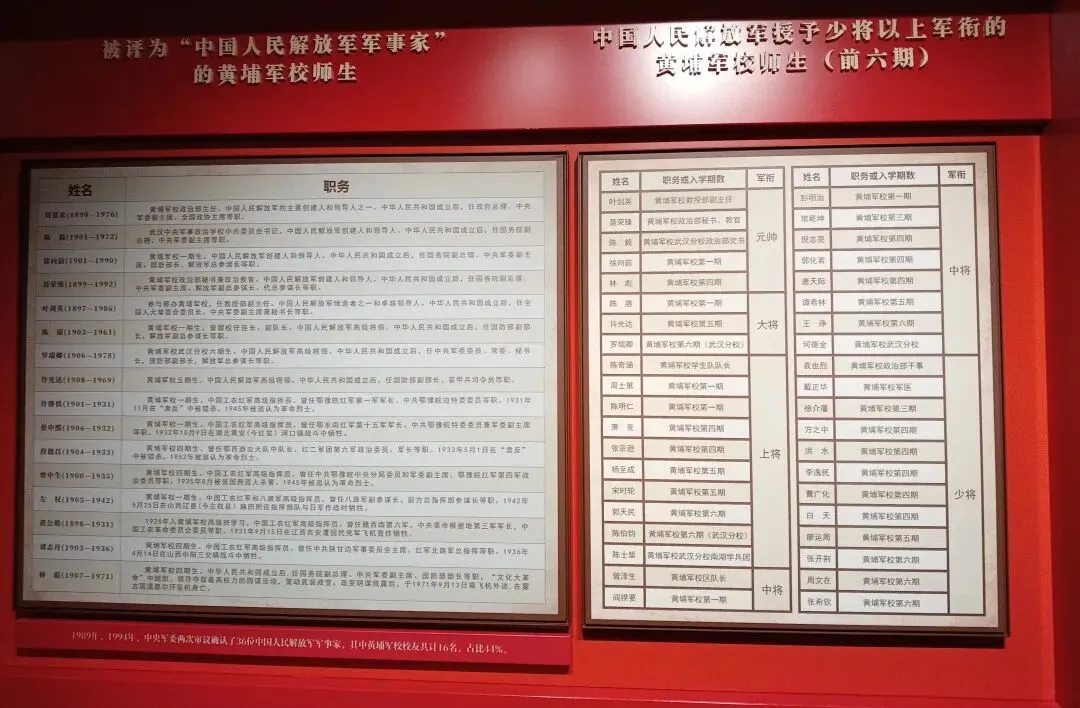 被评为“中国人民解放军军事家”
的黄埔军校师生
姓名 职务
周恩来(1898—1976) 黄埔军校政治部主任。中国人民解放军的主要创建人和领导人之一。中华人民共和国成立后，任政府总理、中央
军委副主席、全国政协主席等职。
陈 毅(1901—1972) 武汉中央军事政治学校中共委员会书记。中国人民解放军创建人和领导人。中华人民共和国成立后，任国务院副
总理、中央军委副主席等职。
徐向前(1901—1990) 黄埔军校一期生。中国人民解放军创建人和领导人。中华人民共和国成立后，任国务院副总理、中央军委副主
席、国防部长、解放军总参谋长等职。
聂荣臻(1899—1992) 黄埔军校政治部秘书兼政治教官。中国人民解放军创建人和领导人。中华人民共和国成立后，任国务院副总理、
中央军委副主席、解放军副总参谋长、代总参谋长等职。
叶剑英(1897—1986) 参与筹办黄埔军校。任教授部副主任。中国人民解放军缔造者之一和卓越领导人。中华人民共和国成立后，任全
国人大常委会委员长、中央军委副主席兼秘书长等职。
陈 赓(1903—1961) 黄埔军校一期生。曾留校任连长、副队长。中国人民解放军高级将领。中华人民共和国成立后，任国防部副部
长、解放军副总参谋长等职。
罗瑞卿(1906—1978) 黄埔军校武汉分校六期生。中国人民解放军高级将领。中华人民共和国成立后，任中央军委委员、常委、秘书
长、国防部副部长、解放军总参谋长等职。
许光达(1908—1969) 黄埔军校五期生。中国人民解放军高级将领。中华人民共和国成立后，任国防部副部长、装甲兵司令员等职。
许继慎(1901—1931) 黄埔军校一期生。中国工农红军高级指挥员。曾任鄂豫皖红军第一军军长、中共鄂豫皖边特委委员等职。1931年
11月在“肃反”中被错杀。1945年被追认为革命烈士。
蔡申熙(1906—1932) 黄埔军校一期生。中国工农红军高级指挥员。曾任鄂东南红军第十五军军长、中共鄂豫皖特委委员兼军委副主席
等职。1932年10月9日在湖北黄安(今红安)河口镇战斗中牺牲。
段德昌(1904—1933) 黄埔军校四期生。曾任鄂西游击大队中队长、红二军团第六军政治委员、军长等职。1933年5月1日在“肃反”
中被错杀。1952年被追认为革命烈士。
曾中生(1900—1935) 黄埔军校四期生。中国工农红军高级指挥员。曾任中共鄂豫皖中央分局委员和军委副主席、鄂豫皖红军第四军政
治委员等职。1935年8月被张国焘派人杀害。1945年被追认为革命烈士。
左 权(1905—1942) 黄埔军校一期生。中国工农红军和八路军高级指挥员。曾任八路军副参谋长、前方总指挥部参谋长等职。1942年
5月25日在山西辽县(今左权县)麻田附近指挥部队与日军作战时牺牲。
黄公略(1898—1931) 1926年入黄埔军校高级班学习。中国工农红军高级指挥员。曾任赣西南第六军、中央革命根据地第三军军长，中
国工农革命委员会委员等职。1931年9月15日在江西吉安遭国民党军飞机轰炸牺牲。
刘志丹(1903—1936) 黄埔军校四期生。中国工农红军高级指挥员。曾任中共陕甘边军事委员会主席、红军北路军总指挥等职。1936年
4月14日在山西中阳三交镇战斗中牺牲。
林 彪(1907—1971) 黄埔军校四期生。中华人民共和国成立后，任国务院副总理、中央军委副主席、国防部部长等职。“文化大革
命”中组织、领导夺取最高权力的阴谋活动，策动武装政变。政变阴谋败露后，于1971年9月13日乘飞机外逃，在蒙
古国温都尔汗坠机身亡。
1989年、1994年，中央军委两次审议确认了36位中国人民解放军军事家，其中黄埔军校校友共计16名，占比44%。
中国人民解放军授予少将以上军衔的
黄埔军校师生（前六期）
姓名 职务或入学期数 军衔
叶剑英 黄埔军校教授部副主任
聂荣臻 黄埔军校政治部秘书、教官
陈 毅 黄埔军校武汉分校政治部文书
徐向前 黄埔军校第一期
林 彪 黄埔军校第四期
元帅
陈 赓 黄埔军校第一期
许光达 黄埔军校第五期
罗瑞卿 黄埔军校第六期（武汉分校）
大将
陈奇涵 黄埔军校学生队队长
周士第 黄埔军校第一期
陈明仁 黄埔军校第一期
萧 克 黄埔军校第四期
张宗逊 黄埔军校第四期
杨至成 黄埔军校第五期
宋时轮 黄埔军校第五期
郭天民 黄埔军校第六期
陈伯钧 黄埔军校第六期（武汉分校）
陈士榘 黄埔军校武汉分校南湖学兵团
上将
曾泽生 黄埔军校区队长
阎揆要 黄埔军校第一期
中将
姓名 职务或入学期数 军衔
彭明治 黄埔军校第一期
常乾坤 黄埔军校第三期
倪志亮 黄埔军校第四期
郭化若 黄埔军校第四期
唐天际 黄埔军校第四期
谭希林 黄埔军校第五期
王 诤 黄埔军校第六期
何德全 黄埔军校武汉分校
中将
袁也烈 黄埔军校政治部干事
戴正华 黄埔军校军医
徐介藩 黄埔军校第三期
方之中 黄埔军校第四期
洪 水 黄埔军校第四期
李逸民 黄埔军校第四期
曹广化 黄埔军校第四期
白 天 黄埔军校第四期
廖运周 黄埔军校第五期
张开荆 黄埔军校第六期
周文在 黄埔军校第六期
张希钦 黄埔军校第六期
少将